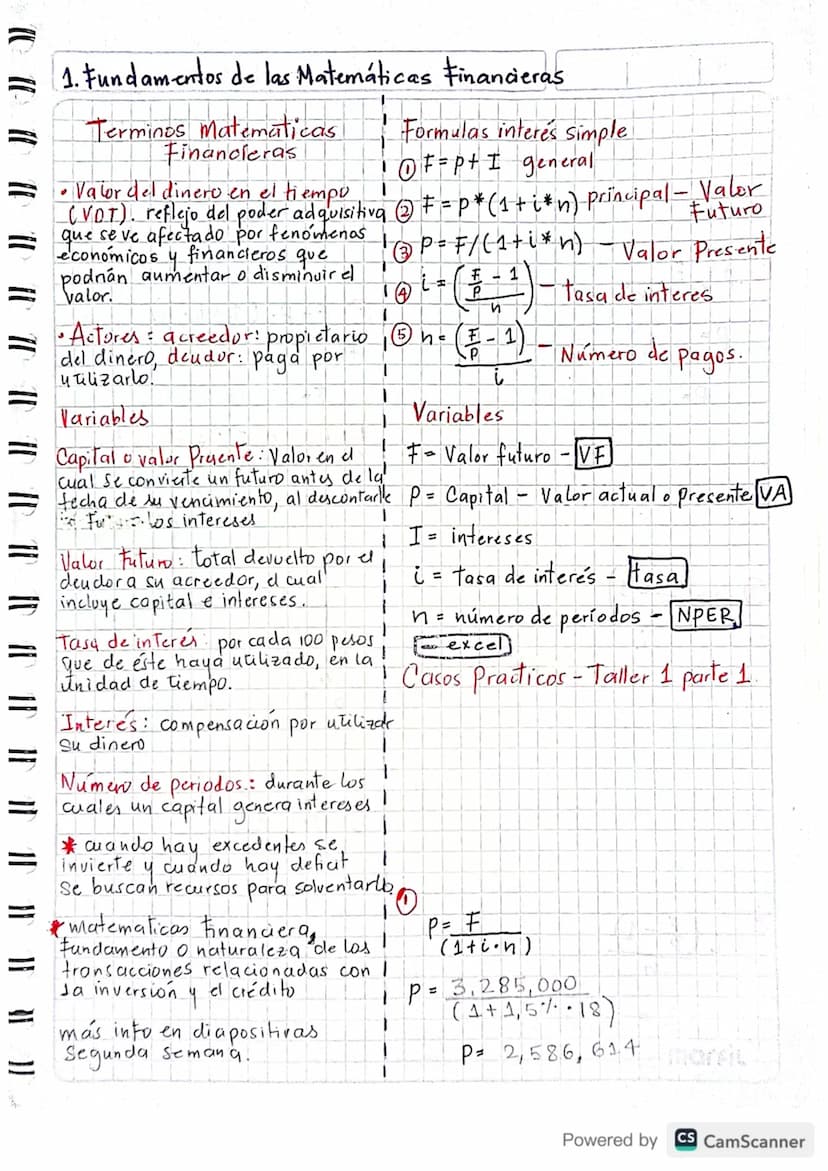 1. Fundamentos de las Matemáticas Financieras
Terminos Matematicas
Financieras
• Valor del dinero en el tiempo
(VDT). reflejo del poder adquisitivo
que se ve afectado por fenómenos
económicos y financieros que
podrián aumentar o disminuir el
valor.
• Actores: acreedor: propietario
del dinero, deudor: paga por
utilizarlo.
Variables
Capital o valor Presente: Valor en el
cual se convierte un futuro antes de la
fecha de su vencimiento, al descontarle
los intereses
Valor Futuro: total devuelto por el
deudor a su acreedor, el cual
incluye capital e intereses.
Tasa de interés: por cada 100 pesos
que de éste haya utilizado, en la
unidad de tiempo.
Interés: compensación por utilizar
su dinero
Número de periodos.: durante los
cuales un capital genera intereses
* cuando hay excedentes se
invierte y cuando hay deficit
se buscan recursos para solventarlo
* matematicas financiera,
fundamento o naturaleza de las
transacciones relacionadas con
la inversión y el crédito
más info en diapositivas
Segunda semana.
Formulas interés simple
① F = p + I general
② F = p*(1+i*n) - principal - Valor
Futuro
③ P = F/(1+i*n) - Valor Presente
④ i = (F/P - 1)/n - tasa de interes
⑤ n = (F/P - 1)/i - Número de pagos.
Variables
F = Valor futuro - VF
P = Capital - Valor actual o presente VA
I = intereses
i = tasa de interés - tasa
n = número de períodos - NPER
excel
Casos Practicos - Taller 1 parte 1.
①
P = F/(1+i·n)
P = 3,285,000/(1+1,5%·18)
P = 2,586,614
marfil
Powered by CS CamScanner